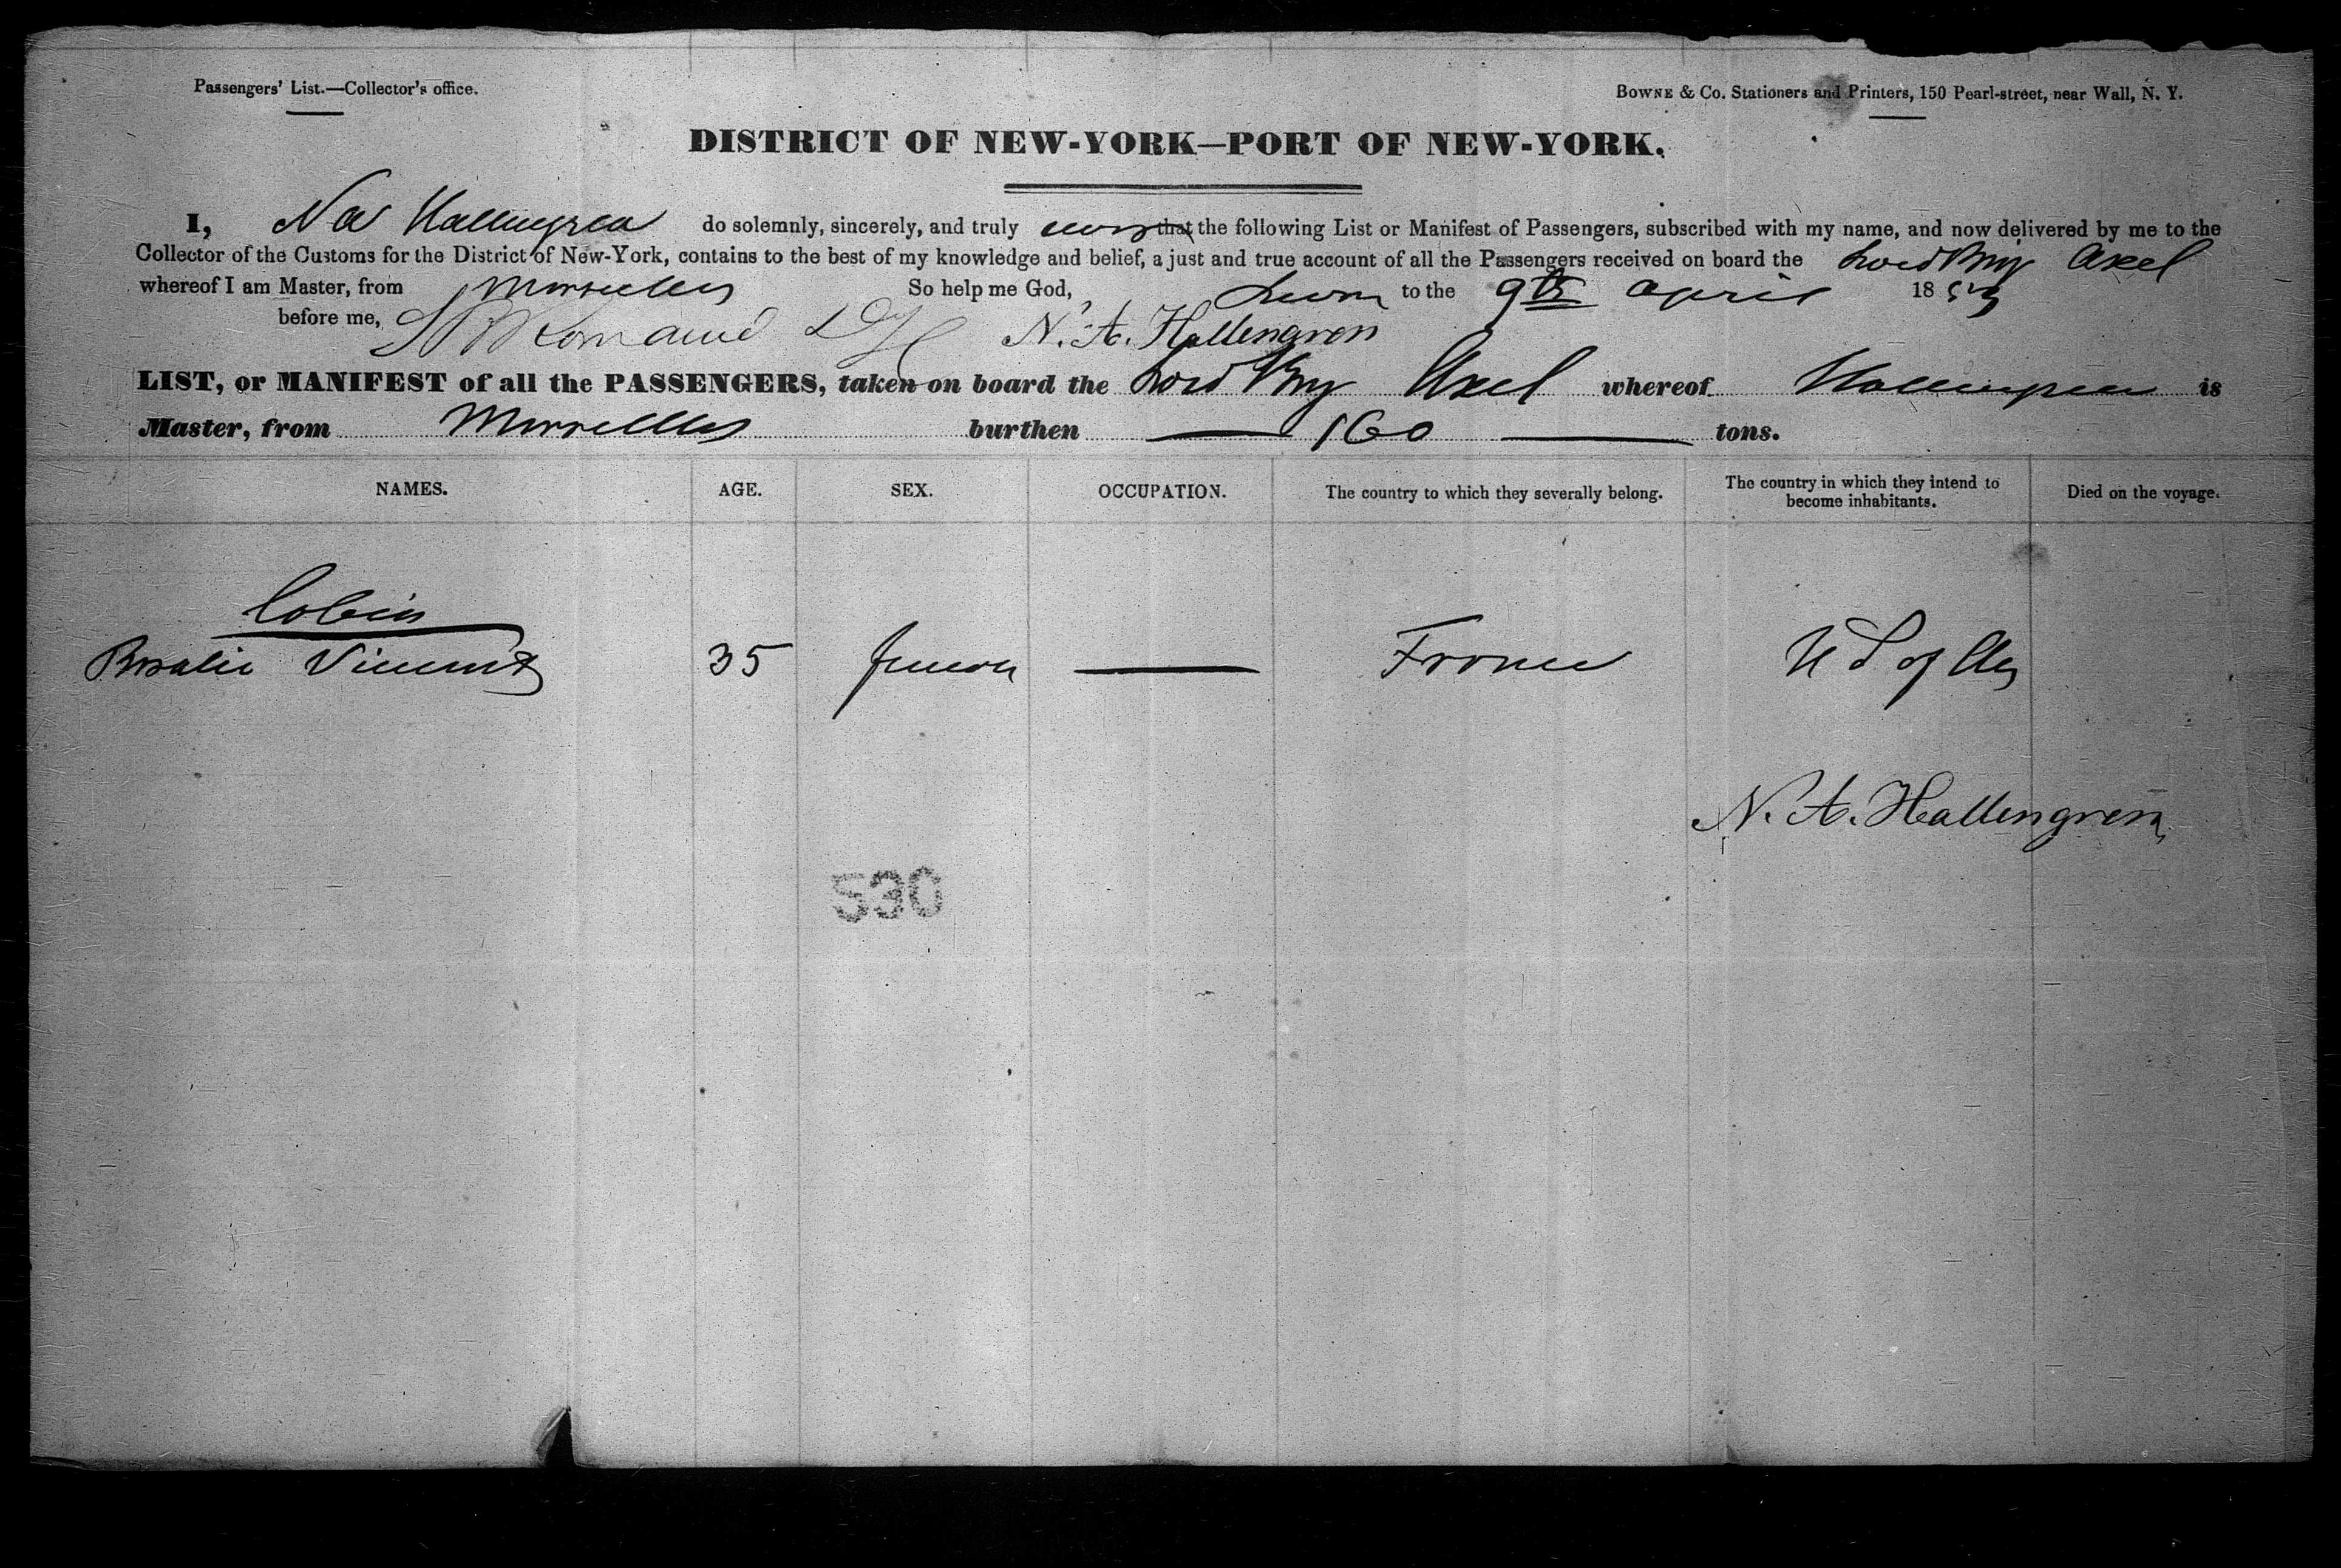 Passengers' List.—Collector's office.
BOWNE & Co. Stationers and Printers, 150 Pearl-street, near Wall, N. Y.
DISTRICT OF NEW-YORK—PORT OF NEW-YORK.
I, N A Hallengren do solemnly, sincerely, and truly swear that the following List or Manifest of Passengers, subscribed with my name, and now delivered by me to the
Collector of the Customs for the District of New-York, contains to the best of my knowledge and belief, a just and true account of all the Passengers received on board the Swed Brig Axel
whereof I am Master, from Marseilles So help me God, Sworn to the 9th April 1853
before me, N. A. Hallengren
LIST, or MANIFEST of all the PASSENGERS, taken on board the Swed Brig Axel whereof Hallengren is
Master, from Marseilles burthen 160 tons.
NAMES. AGE. SEX. OCCUPATION. The country to which they severally belong. The country in which they intend to become inhabitants. Died on the voyage.
Cabin
Rosalie Vincent 35 female — France U S of Am
N. A. Hallengren
530